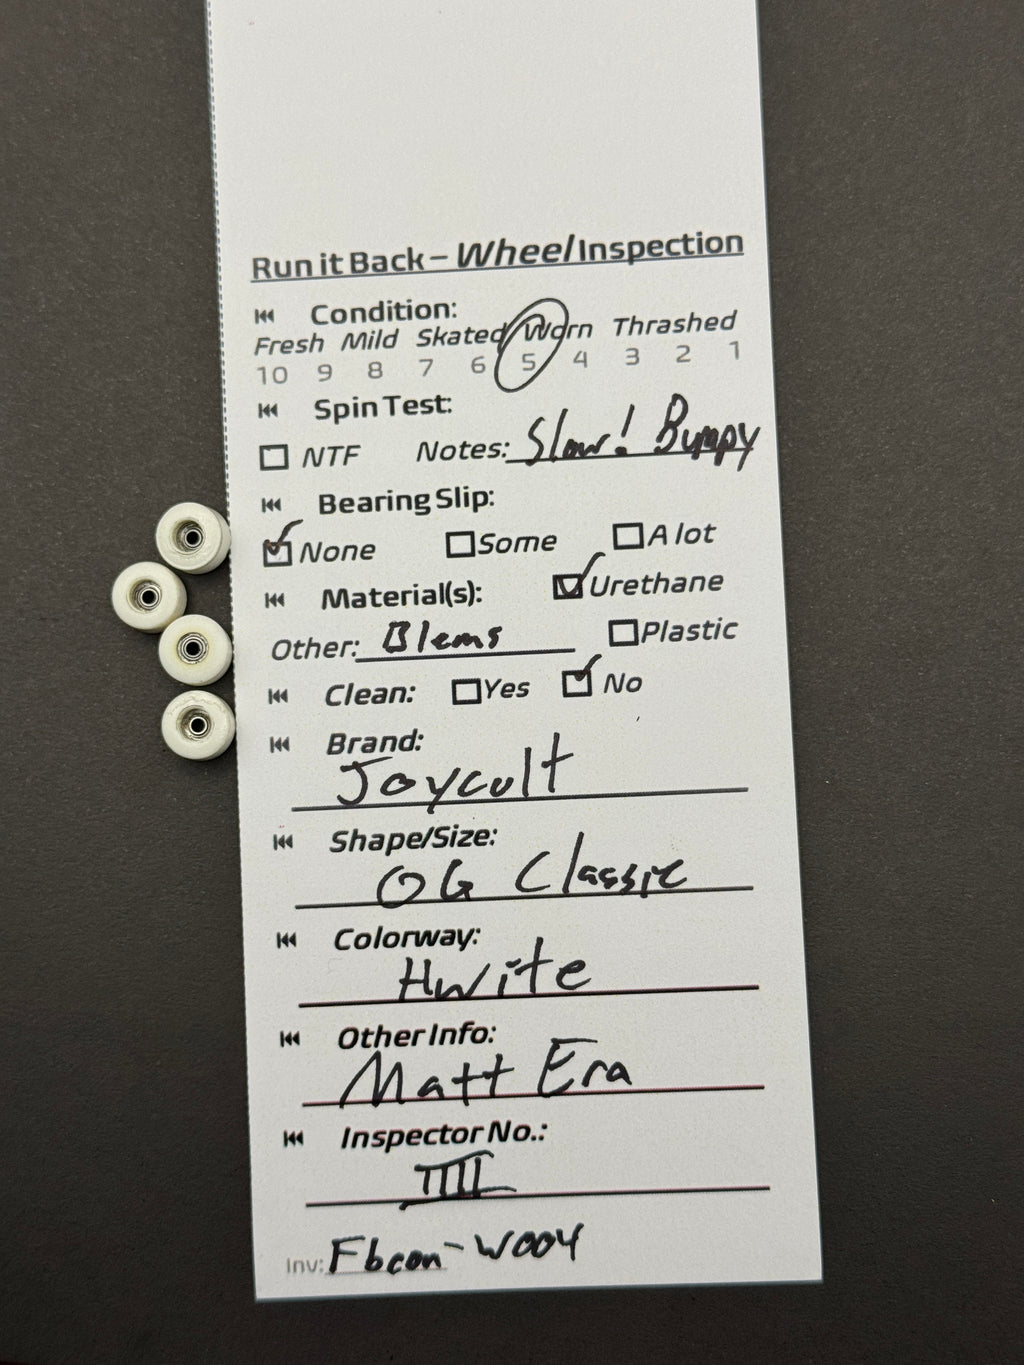 Run it Back – Wheel Inspection
Condition:
Fresh Mild Skated Worn Thrashed
10 9 8 7 6 5 4 3 2 1
Spin Test:
NTF Notes: Slow! Bumpy
Bearing Slip:
None Some A lot
Material(s): Urethane
Other: Blems Plastic
Clean: Yes No
Brand:
Joycult
Shape/Size:
OG Classic
Colorway:
Hwite
Other Info:
Matt Era
Inspector No.:
IIII
Inv: Fbcon-W004